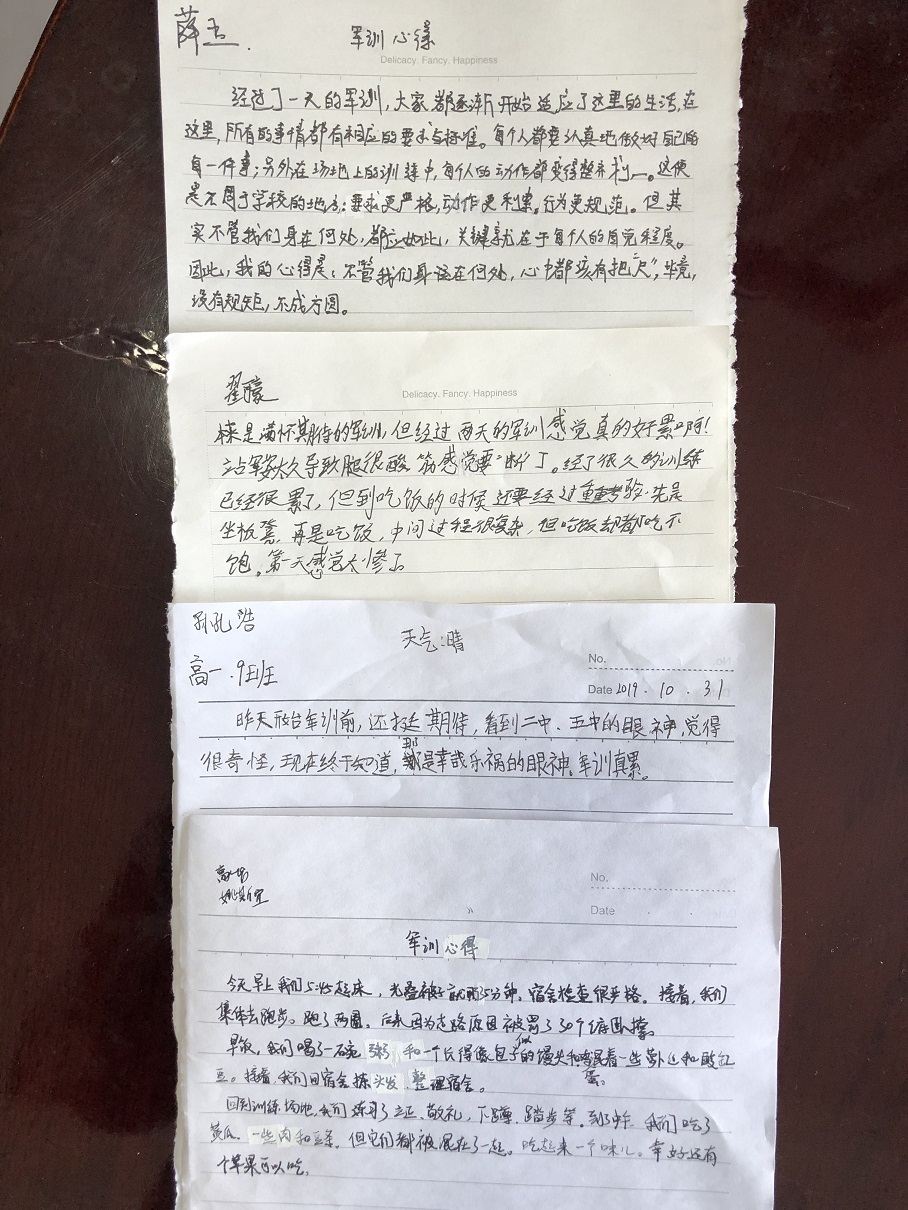 薛玉.
军训心得
Delicacy. Fancy. Happiness
经过了一天的军训，大家都逐渐开始适应了这里的生活，在
这里，所有的事情都有相应的要求与标准。每个人都要认真地做好自己的
每一件事；另外在场地上的训练中，每个人的动作都变得整齐利一。这便
是不同于学校的地方：要求更严格，动作更利索，行为更规范。但其
实不管我们身在何处，都应如此，关键就在于每个人的自觉程度。
因此，我的心得是：不管我们身该在何处，心中都该有把“尺”，毕竟，
没有规矩，不成方圆。
翟豪
Delicacy. Fancy. Happiness
本来是满怀期待的军训，但经过两天的军训感觉真的好“累”啊！
站军姿太久导致腿很酸，筋感觉要“断”了。经了很久的训练
已经很累了，但到吃饭的时候还要经过重重考验。先是
坐板凳，再是吃饭，中间过程很复杂，但吃饭却都吃不
饱。第一天感觉太惨了。
孙孔浩
天气：晴
高一.9班
No.
Date 2019. 10. 31
昨天邢台军训前，还挺期待，看到二中、五中的眼神，觉得
很奇怪，现在终于知道，那是幸哉乐祸的眼神。军训真累。
No.
Date
军训心得
今天早上我们5:45起床，光叠被子就用5分钟，宿舍检查很严格。接着，我们
集体去跑步。跑了两圈，后来因为走路原因被罚了30个俯卧撑。
早饭，我们喝了一碗粥和一个长得像包子似的馒头和鸡蛋看一些萝卜丝和酸豇
豆。接着，我们回宿舍拣头发，整理宿舍。
回到训练场地，我们练习了立正、敬礼，下蹲、踏步等。到中午，我们吃了
黄瓜，一些肉和豆条，但它们都被混在了一起。吃起来一个味儿。幸好还有
个苹果可以吃。